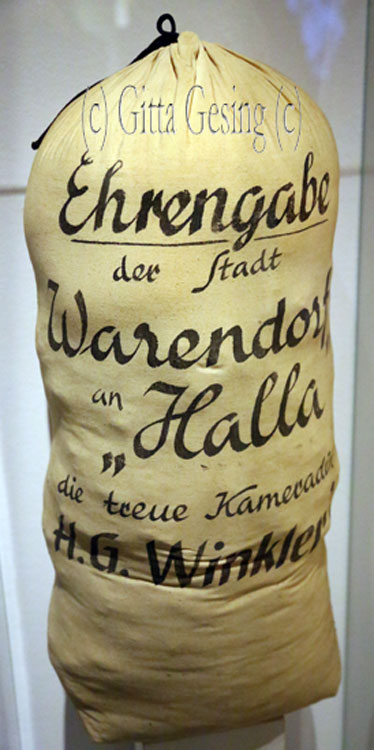 (c) Gitta Gesing (c)
Ehrengabe
der Stadt
Warendorf
an
„Halla
die treue Kameradin
H.G. Winkler